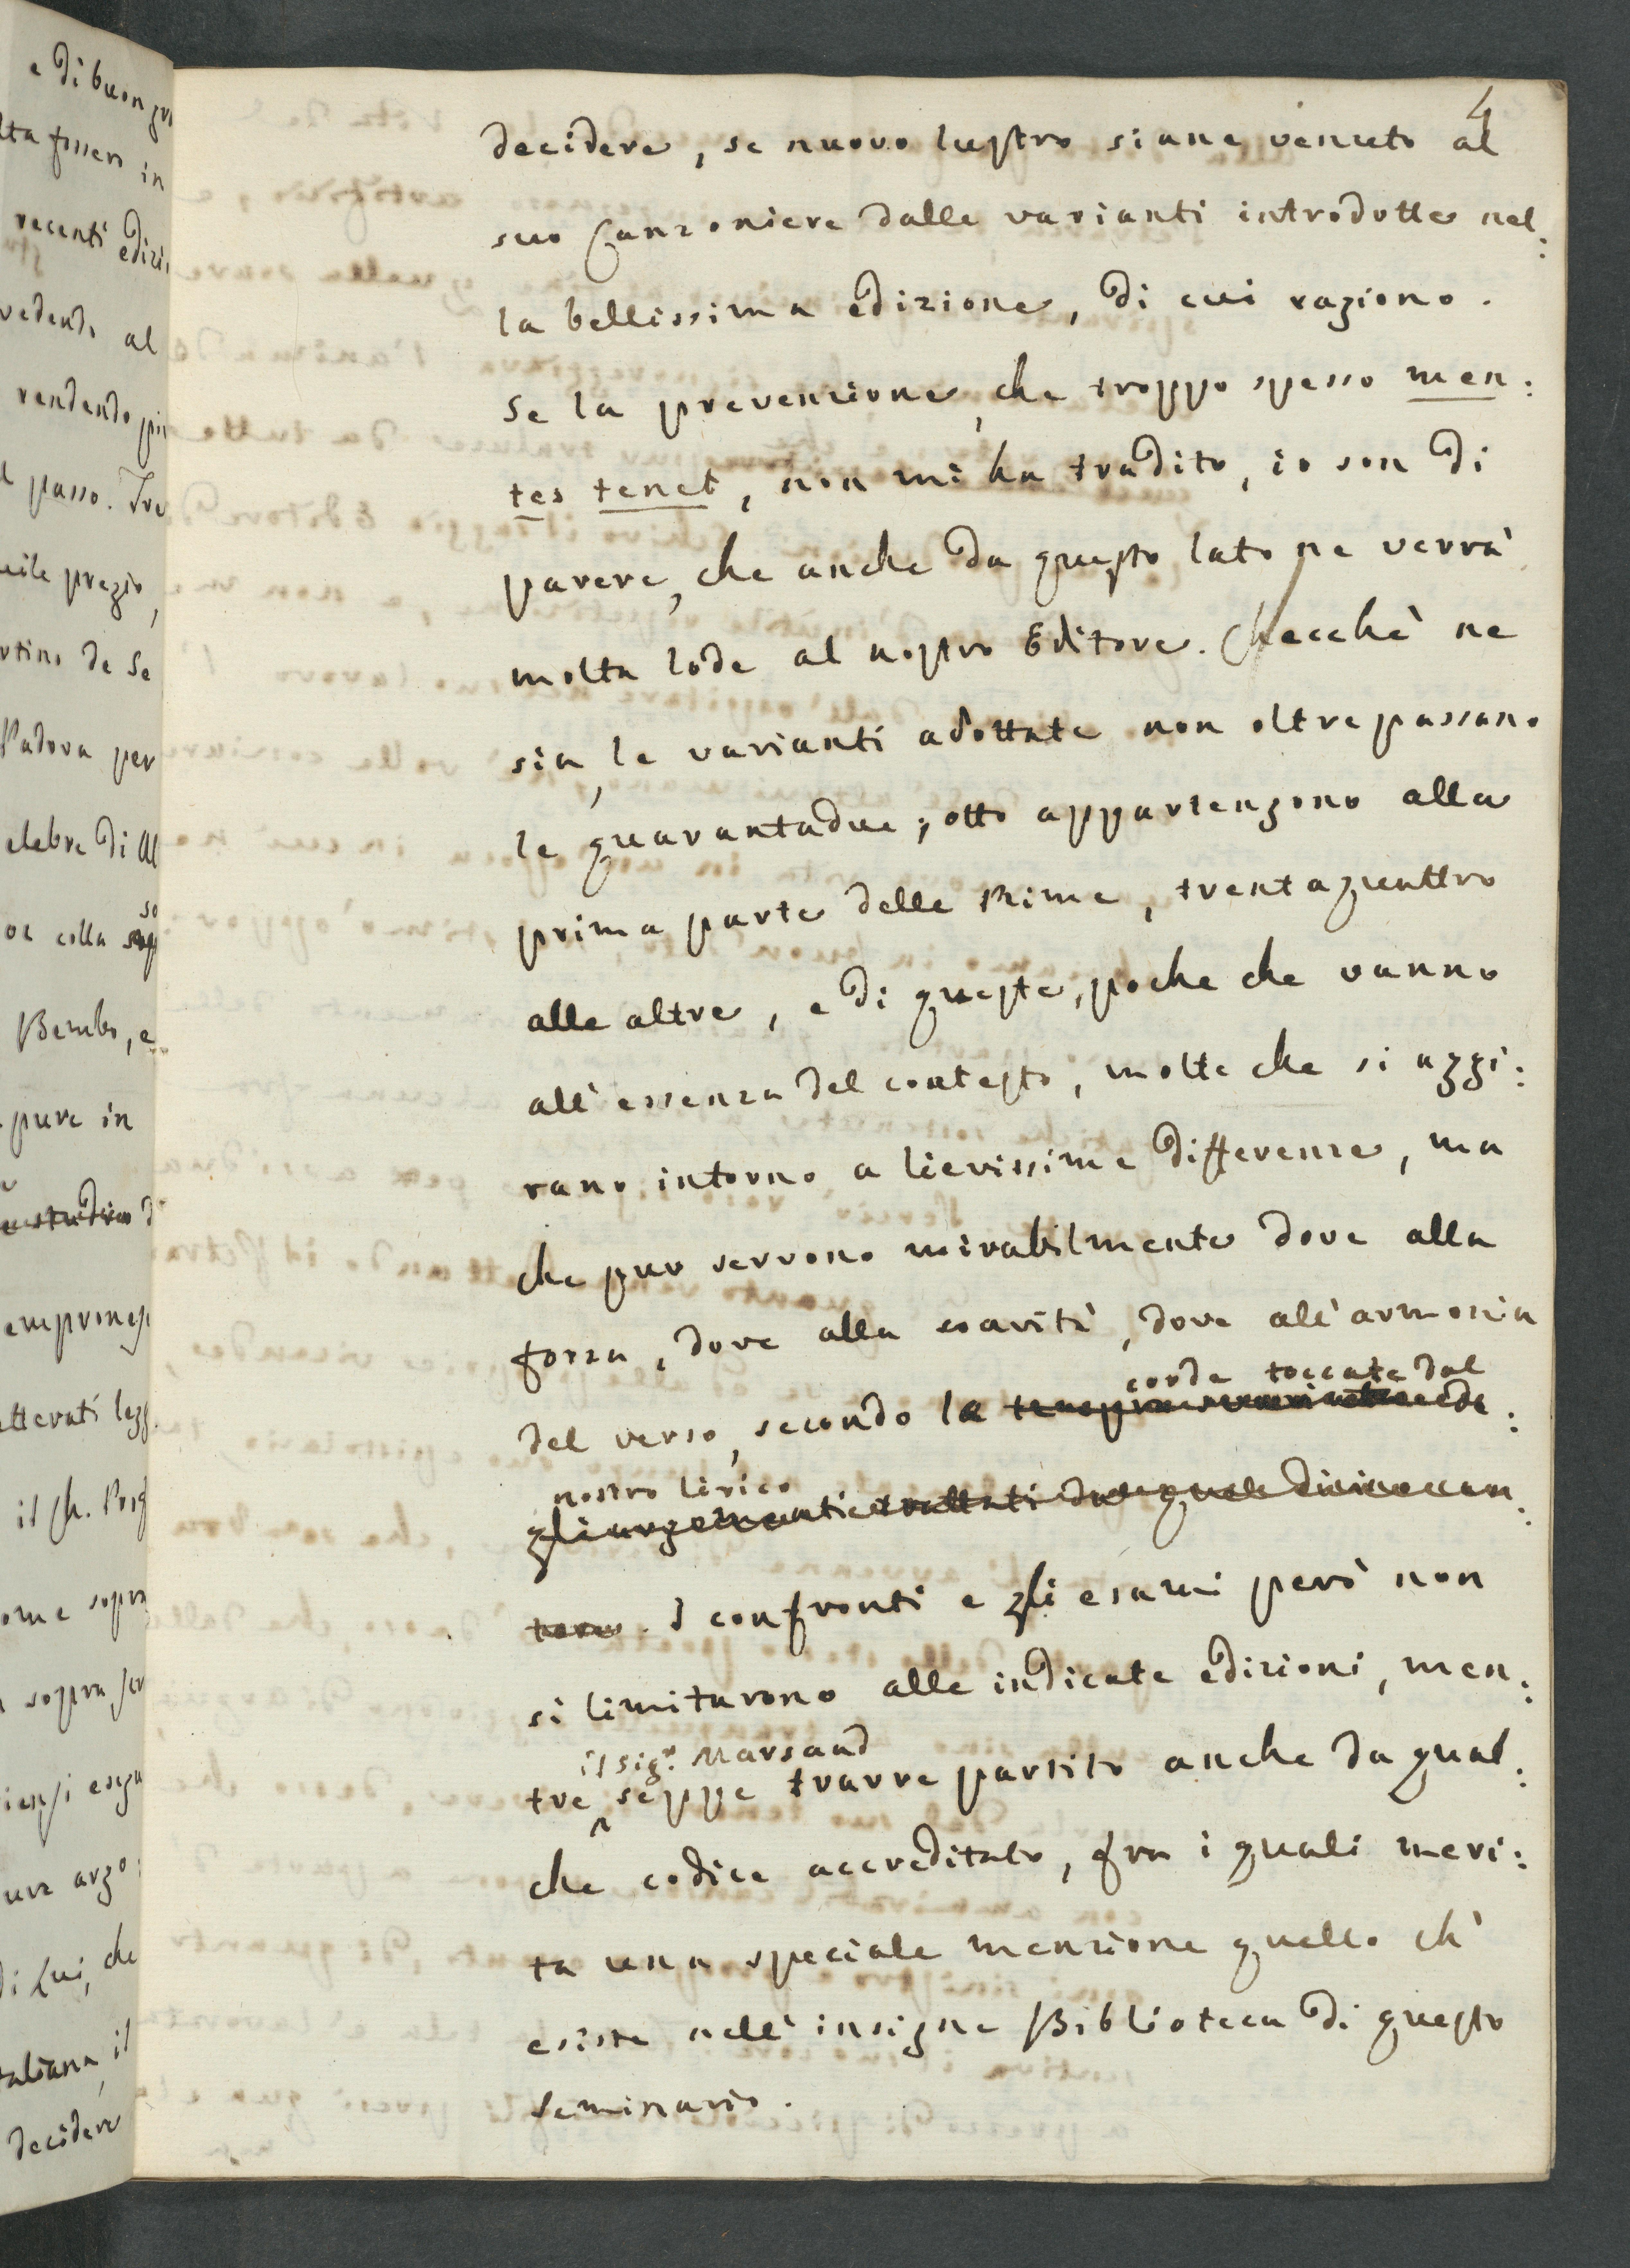 e di buon
lta fossero in
recenti edizi
vedendo al
rendendo più
l passo. Tre
uile pregio,
rtino de Se
Padova per
elebre di Al
so
or colla
Bembo, e
pure in
empronesi
tterati legg
il Ch.
ome sopra
sopra
ura argo:
di Lui, che
taliana, il
decidere
4
decidere, se nuovo lustro siane venuto al
suo Canzoniere dalle varianti introdotte nel:
la bellissima edizione, di cui ragiono.
Se la prevenzione, che troppo spesso men:
tes tenet, non mi ha tradito, io son di
parere, che anche da questo lato ne verrà
molta lode al nostro Editore. Checchè ne
sia, le varianti adottate non oltrepassano
le quarantadue; otto appartengono alla
prima parte delle Rime, trentaquattro
alle altre, e di queste, poche che vanno
all'essenza del contesto, molte che si aggi:
rano intorno a lievissime differenze, ma
che pur servono mirabilmente dove alla
forza, dove alla soavità, dove all'armonia
corde toccate dal
del verso, secondo le
nostro lirico
gli argomenti trattati dal quel divino can:
tore. I confronti e gli esami però non
si limitarono alle indicate edizioni, men:
il Sig.r Marsand
tre seppe trarre partito anche da qual:
che codice accreditato, fra i quali meri:
ta una speciale menzione quello ch'
esiste nell'insigne Biblioteca di questo
Seminario.